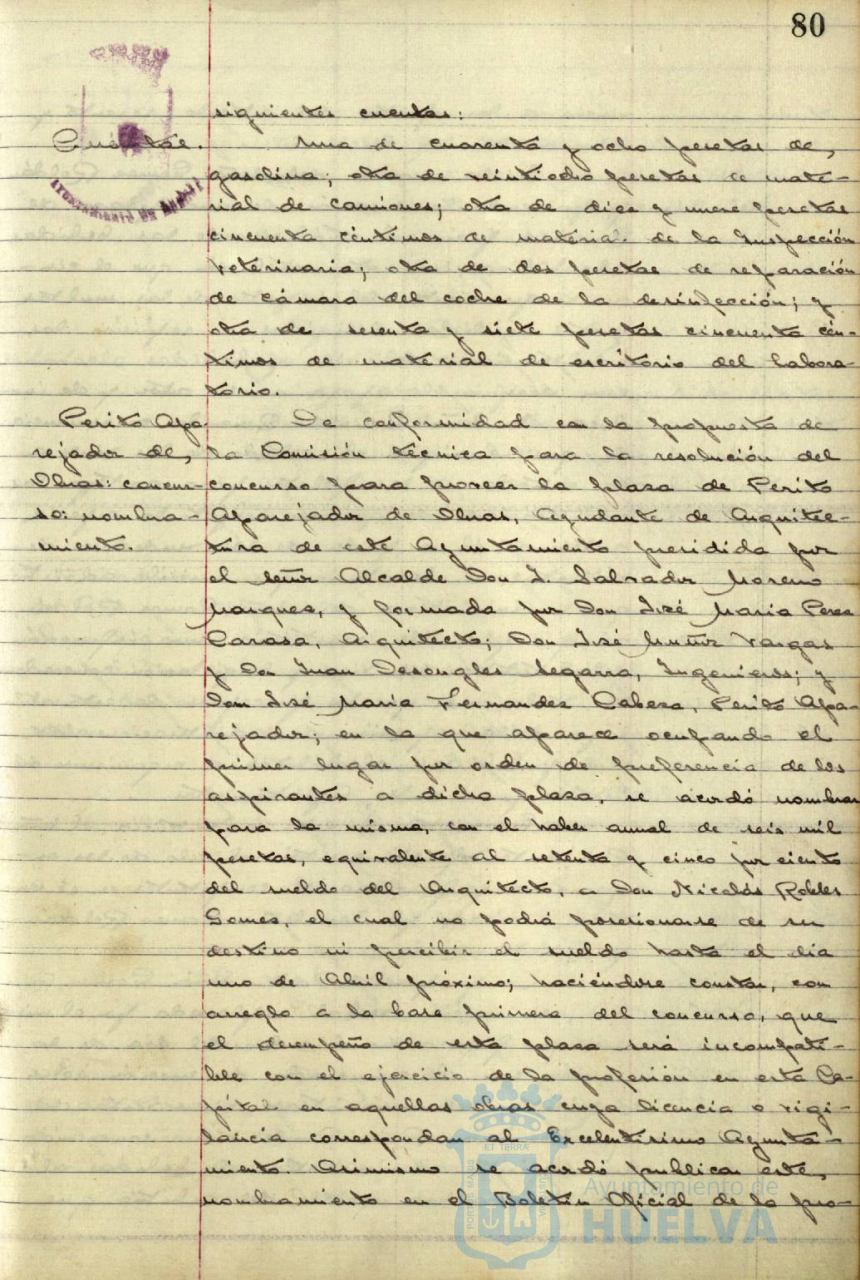 80
siguientes cuentas:
Cuentas. Una de cuarenta y ocho pesetas de,
gasolina; otra de veintiocho pesetas de mate-
rial de camiones; otra de diez y nueve pesetas
cincuenta céntimos de material de la Inspección
Veterinaria; otra de dos pesetas de reparación
de cámara del coche de la desinfección; y
otra de sesenta y siete pesetas cincuenta cén-
timos de material de escritorio del labora-
torio.
Ayuntamiento de Huelva
Perito Apa-
rejador de,
Obras: concur-
so: nombra-
miento.
De conformidad con la propuesta de
la Comisión técnica para la resolución del
concurso para proveer la plaza de Perito
Aparejador de Obras, Ayudante de Arquitec-
tura de este Ayuntamiento presidida por
el señor Alcalde Don J. Salvador Moreno
Marquez, y formada por Don José Maria Perez
Carasa, Arquitecto; Don José Muñoz Vargas
y Don Juan Desongles Segarra, Ingenieros; y
Don José Maria Fernandez Cabeza, Perito Apa-
rejador; en la que aparece ocupando el
primer lugar por orden de preferencia de los
aspirantes a dicha plaza, se acordó nombrar
para la misma, con el haber anual de seis mil
pesetas, equivalente al setenta y cinco por ciento
del sueldo del Arquitecto, a Don Nicolás Robles
Gomez, el cual no podrá posesionarse de su
destino ni percibir el sueldo hasta el día
uno de Abril próximo; haciéndose constar, con
arreglo a la base primera del concurso, que
el desempeño de esta plaza será incompati-
ble con el ejercicio de la profesión en esta Ca-
pital en aquellas obras cuya licencia o vigi-
lancia correspondan al Excelentísimo Ayunta-
miento. Asimismo se acordó publicar este,
nombramiento en el Boletín Oficial de la pro-
Ayuntamiento de
HUELVA